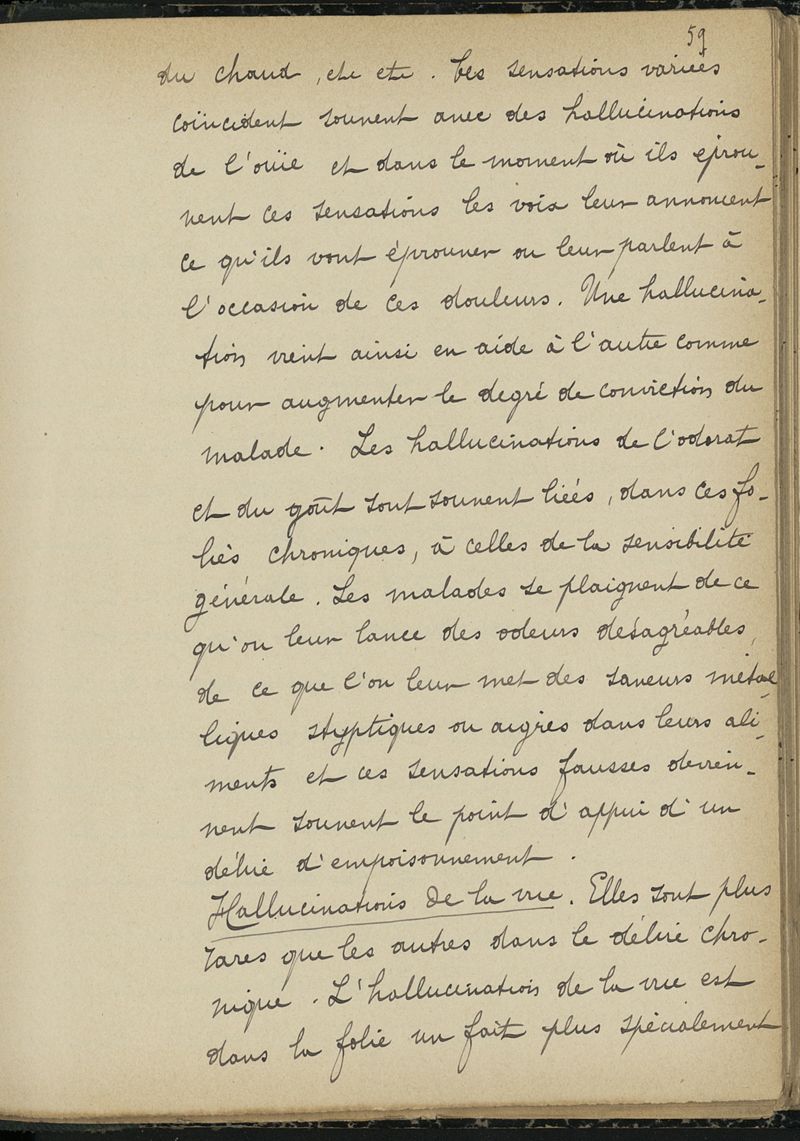 59
du chaud, etc etc. Ces sensations variées
coïncident souvent avec des hallucinations
de l'ouïe et dans le moment où ils éprou-
vent ces sensations les voix leur annoncent
ce qu'ils vont éprouver ou leur parlent à
l'occasion de ces douleurs. Une hallucina-
tion vient ainsi en aide à l'autre comme
pour augmenter le degré de conviction du
malade. Les hallucinations de l'odorat
et du goût sont souvent liées, dans ces fo-
lies chroniques, à celles de la sensibilité
générale. Les malades se plaignent de ce
qu'on leur lance des odeurs désagréables,
de ce que l'on leur met des saveurs métal-
liques styptiques ou aigres dans leurs ali-
ments et ces sensations fausses devien-
nent souvent le point d'appui d'un
délire d'empoisonnement.
Hallucinations de la vue. Elles sont plus
rares que les autres dans le délire chro-
nique. L'hallucination de la vue est
dans la folie un fait plus spécialement